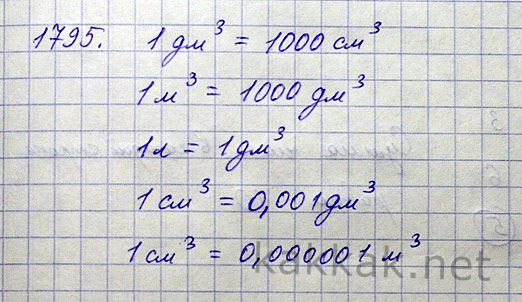 1795. 1 дм³ = 1000 см³
1 м³ = 1000 дм³
1 л = 1 дм³
1 см³ = 0,001 дм³
1 см³ = 0,000001 м³
kakkak.net